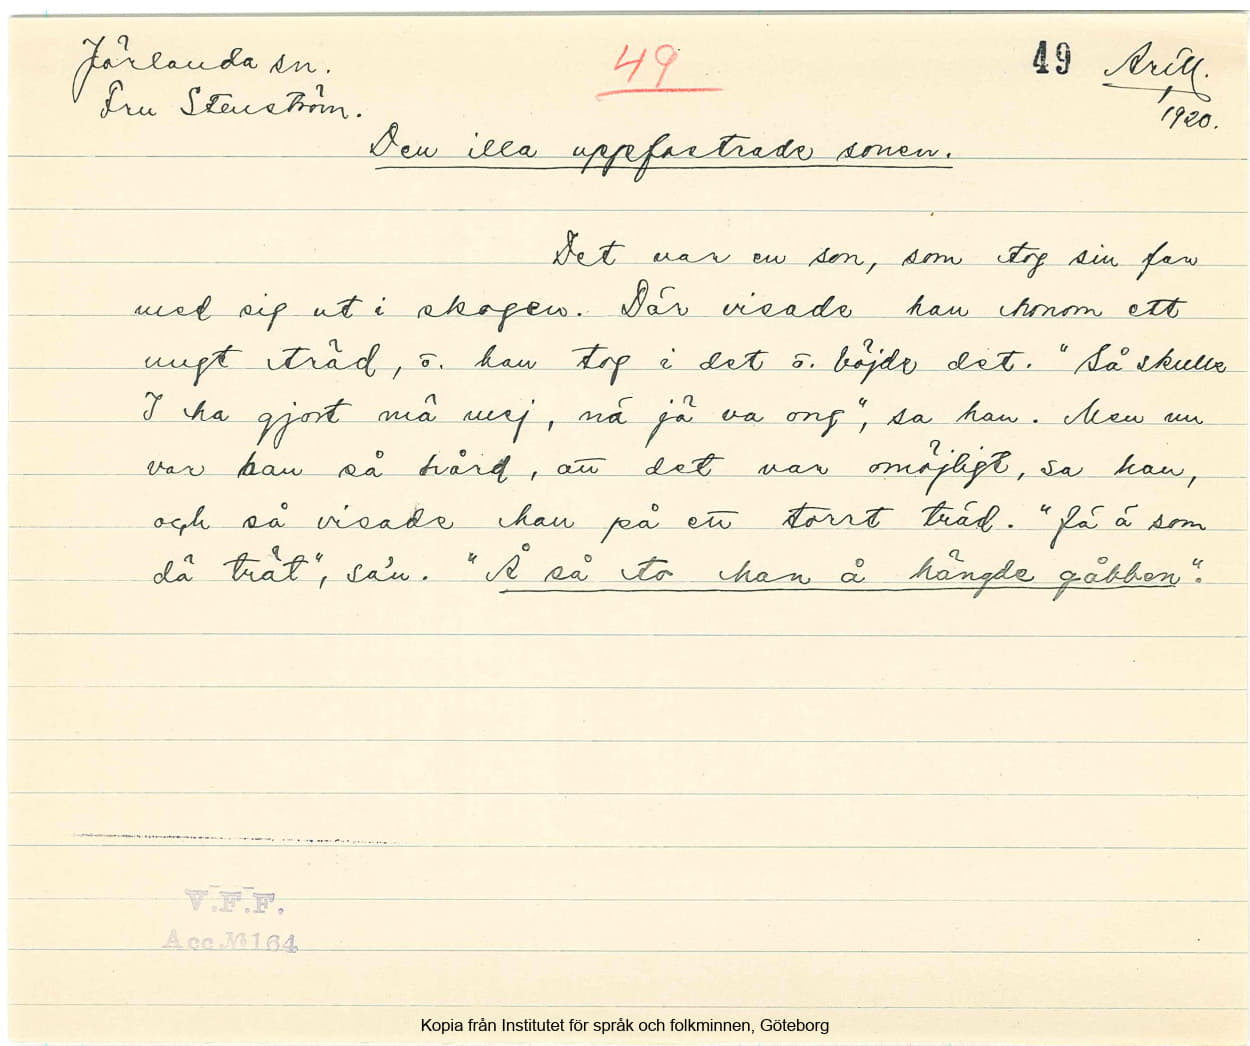 Jörlanda sn.
Fru Stenström.
49
49
Arill.
1920.
Den illa uppfostrade sonen.
Det var en son, som tog sin far
med sig ut i skogen. Där visade han honom ett
ungt träd, ō. han tog i det ō. böjde det. "Så skulle
I ha gjort mä mej, nä jä va ong", sa han. Men nu
var han så hård, att det var omöjligt, sa han,
och så visade han på ett torrt träd. "Ja ä som
dä trät", sa'n. "Å så to han å hängde gåbben".
V.F.F.
Acc. № 164
Kopia från Institutet för språk och folkminnen, Göteborg